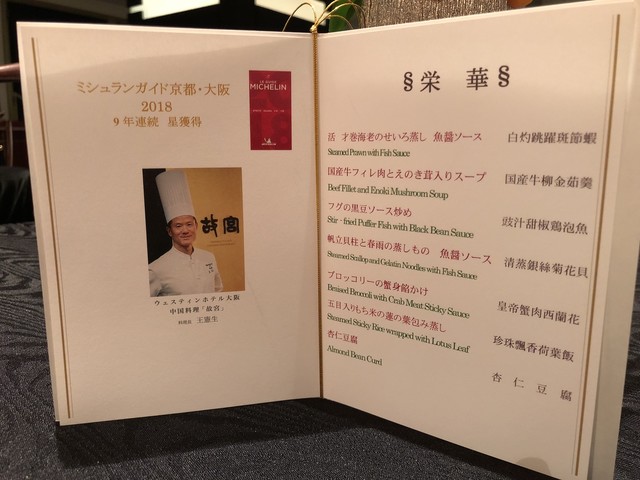 ミシュランガイド京都・大阪
2018
9年連続 星獲得
LE GUIDE
MICHELIN
故宮
ウェスティンホテル大阪
中国料理「故宮」
料理長 王憲生
§栄 華§
活 才巻海老のせいろ蒸し 魚醤ソース 白灼跳躍斑節蝦
Steamed Prawn with Fish Sauce
国産牛フィレ肉とえのき茸入りスープ 国産牛柳金茹羹
Beef Fillet and Enoki Mushroom Soup
フグの黒豆ソース炒め 豉汁甜椒鶏泡魚
Stir - fried Puffer Fish with Black Bean Sauce
帆立貝柱と春雨の蒸しもの 魚醤ソース 清蒸銀絲菊花貝
Steamed Scallop and Gelatin Noodles with Fish Sauce
ブロッコリーの蟹身餡かけ 皇帝蟹肉西蘭花
Braised Broccoli with Crab Meat Sticky Sauce
五目入りもち米の蓮の葉包み蒸し 珍珠飄香荷葉飯
Steamed Sticky Rice wrapped with Lotus Leaf
杏仁豆腐 杏仁豆腐
Almond Bean Curd